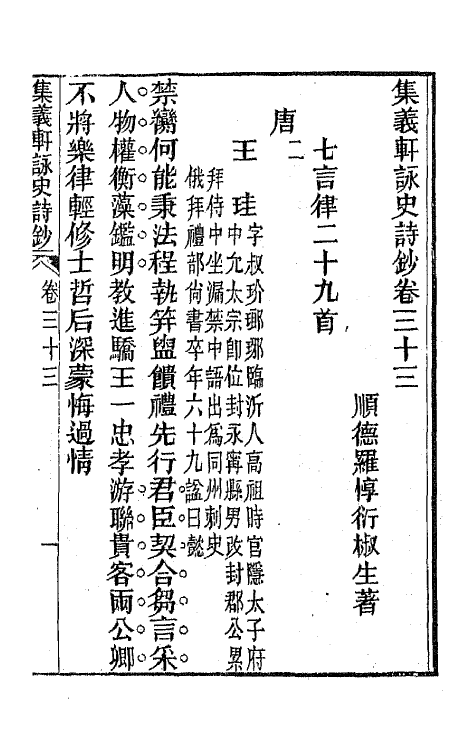 集義軒詠史詩鈔卷三十三
順德羅惇衍椒生著
七言律二十九首
唐二
王珪
字叔玠瑯琊臨沂人高祖時官隱太子府
中允太宗卽位封永寧縣男改封郡公累
拜侍中坐漏禁中語出為同州刺史
俄拜禮部尙書卒年六十九諡曰懿
禁臠何能秉法程執笄盥饋禮先行君臣契合芻言采
人物權衡藻鑑明教進驕王一忠孝游聯貴客兩公卿
不將樂律輕修士哲后深蒙悔過情
集義軒詠史詩鈔
卷三十三
一